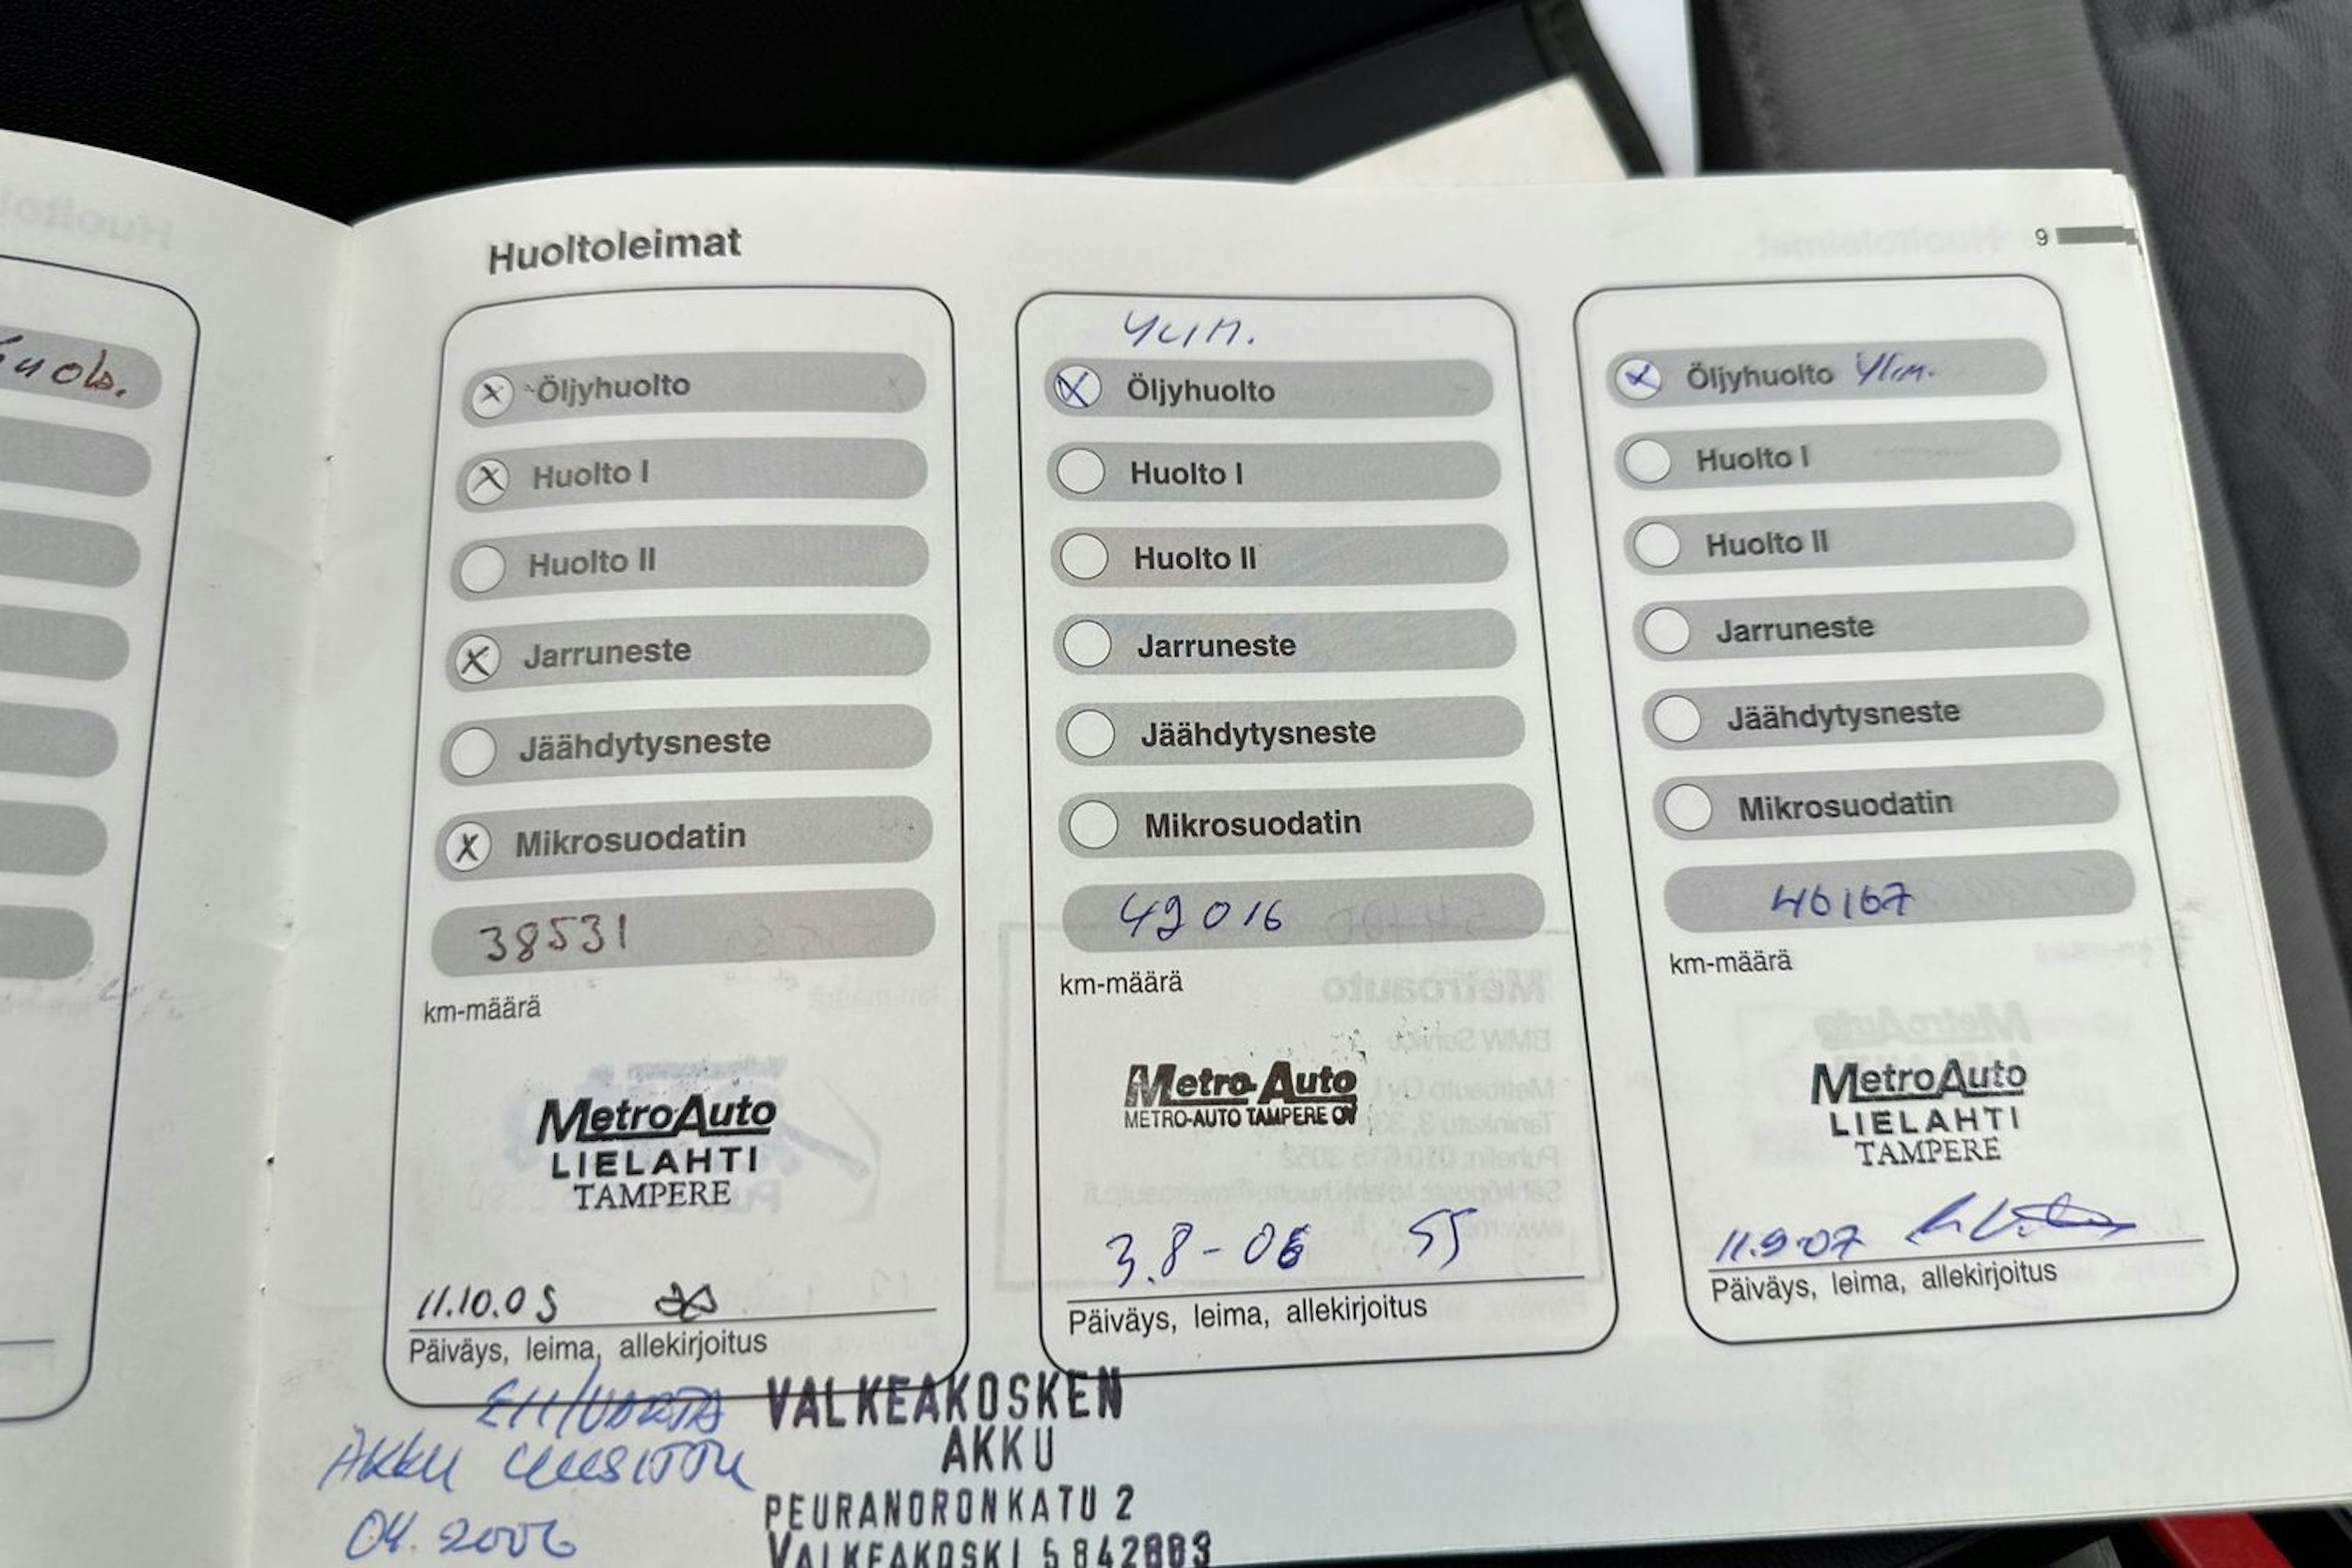 Huoltoleimat
9
Öljyhuolto
Huolto I
Huolto II
Jarruneste
Jäähdytysneste
Mikrosuodatin
38531
km-määrä
MetroAuto
LIELAHTI
TAMPERE
11.10.05
Päiväys, leima, allekirjoitus
YLIM.
Öljyhuolto
Huolto I
Huolto II
Jarruneste
Jäähdytysneste
Mikrosuodatin
42016
km-määrä
Metro-Auto
METRO-AUTO TAMPERE OY
3.8-06
Päiväys, leima, allekirjoitus
Öljyhuolto Ylim.
Huolto I
Huolto II
Jarruneste
Jäähdytysneste
Mikrosuodatin
46167
km-määrä
MetroAuto
LIELAHTI
TAMPERE
11.9.07
Päiväys, leima, allekirjoitus
AKKU UUSITTU
04.2006
VALKEAKOSKEN
AKKU
PEURANORONKATU 2
VALKEAKOSKI 5842883